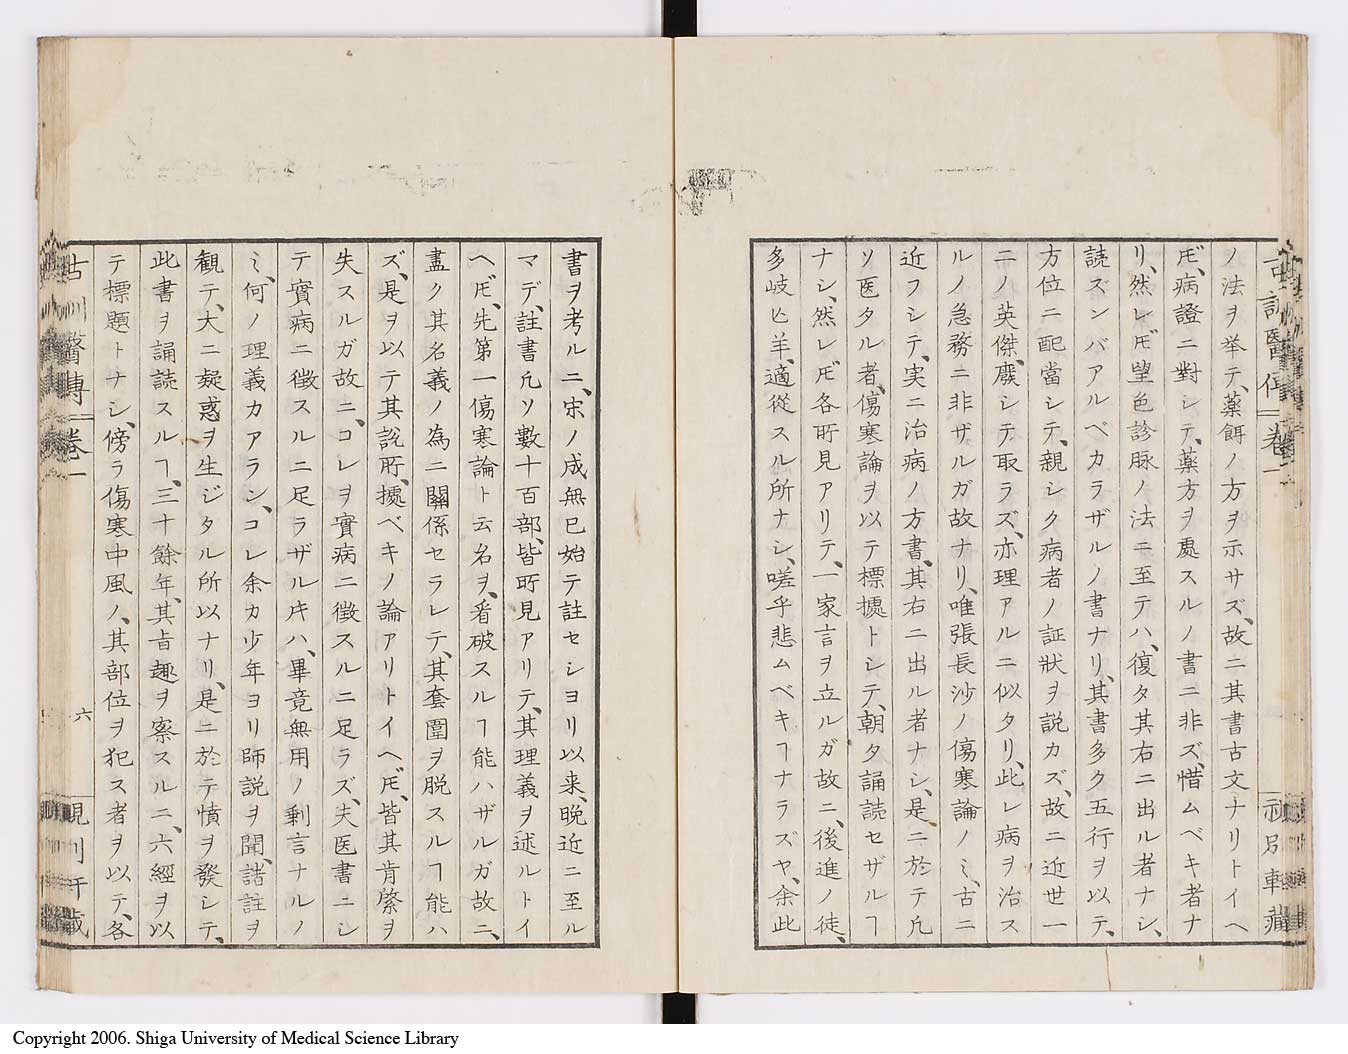 ノ法ヲ挙テ、薬餌ノ方ヲ示サズ、故ニ其書古文ナリトイヘ
𪜈、病證ニ對シテ、薬方ヲ處スルノ書ニ非ズ、惜ムベキ者ナ
リ、然レ𪜈望色診脉ノ法ニ至テハ、復タ其右ニ出ル者ナシ、
読ズンバアルベカラザルノ書ナリ、其書多ク五行ヲ以テ、
方位ニ配當シテ、親シク病者ノ証狀ヲ説カズ、故ニ近世一
二ノ英傑、廢シテ取ラズ、亦理アルニ似タリ、此レ病ヲ治ス
ルノ急務ニ非ザルガ故ナリ、唯張長沙ノ傷寒論ノミ、古ニ
近フシテ、実ニ治病ノ方書、其右ニ出ル者ナシ、是ニ於テ凢
ソ医タル者、傷寒論ヲ以テ標據トシテ、朝夕誦読セザルヿ
ナシ、然レ𪜈各所見アリテ、一家言ヲ立ルガ故ニ、後進ノ徒、
多岐亾羊、適従スル所ナシ、嗟乎悲ムベキヿナラズヤ、余此
書ヲ考ルニ、宋ノ成無已始テ註セシヨリ以来、晩近ニ至ル
マデ、註書凢ソ數十百部、皆所見アリテ、其理義ヲ述ルトイ
ヘ𪜈、先第一傷寒論ト云名ヲ、看破スルヿ能ハザルガ故ニ、
盡ク其名義ノ為ニ關係セラレテ、其套圍ヲ脱スルヿ能ハ
ズ、是ヲ以テ其説所、據ベキノ論アリトイヘ𪜈、皆其肯綮ヲ
失スルガ故ニ、コレヲ實病ニ徴スルニ足ラズ、夫医書ニシ
テ實病ニ徴スルニ足ラザル片ハ、畢竟無用ノ剰言ナルノ
ミ、何ノ理義カアラン、コレ余カ少年ヨリ師説ヲ聞、諸註ヲ
観テ、大ニ疑惑ヲ生ジタル所以ナリ、是ニ於テ憤ヲ發シテ、
此書ヲ誦読スルヿ、三十餘年、其旨趣ヲ察スルニ、六經ヲ以
テ標題トナシ、傍ラ傷寒中風ノ、其部位ヲ犯ス者ヲ以テ、各
古訓醫傳
卷一
六
Copyright 2006. Shiga University of Medical Science Library